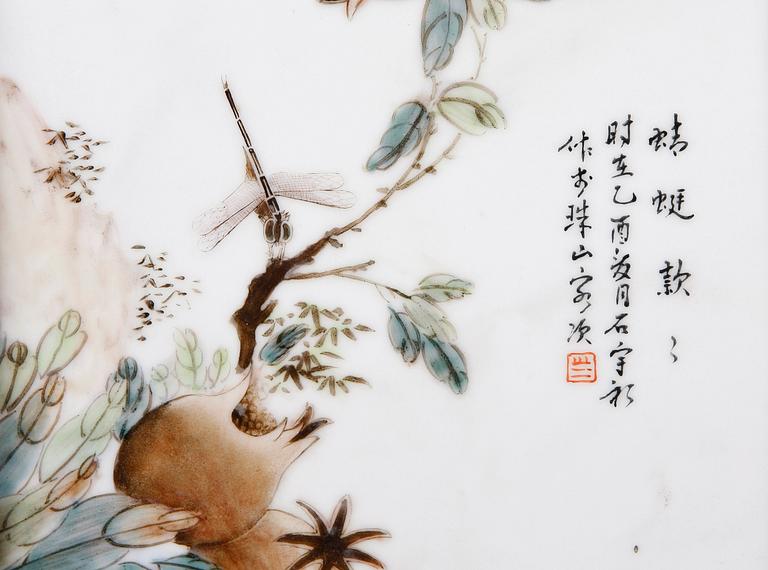 蜻蜓款〻
时在乙酉夏月石宇初
作於珠山客次